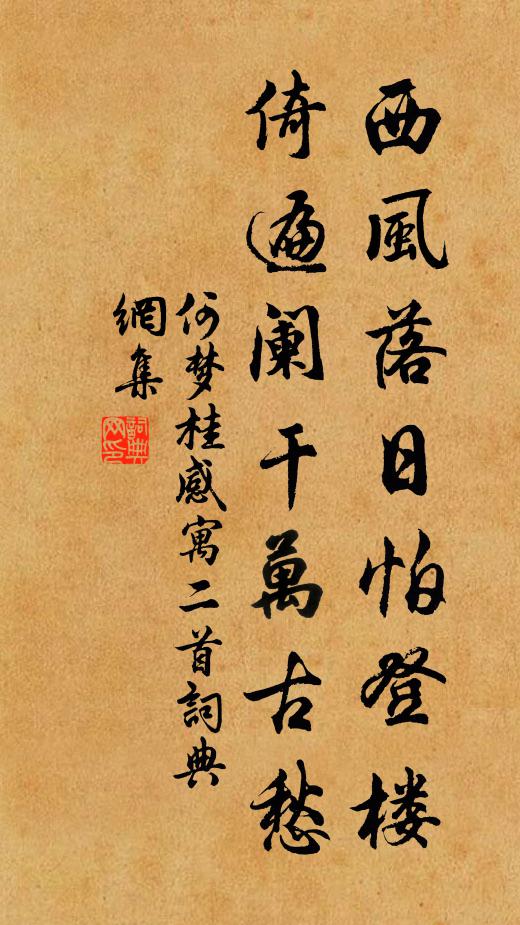 西風落日怕登楼
倚遍阑干萬古愁
何梦桂感寓二首詞典
網集
詞典网印